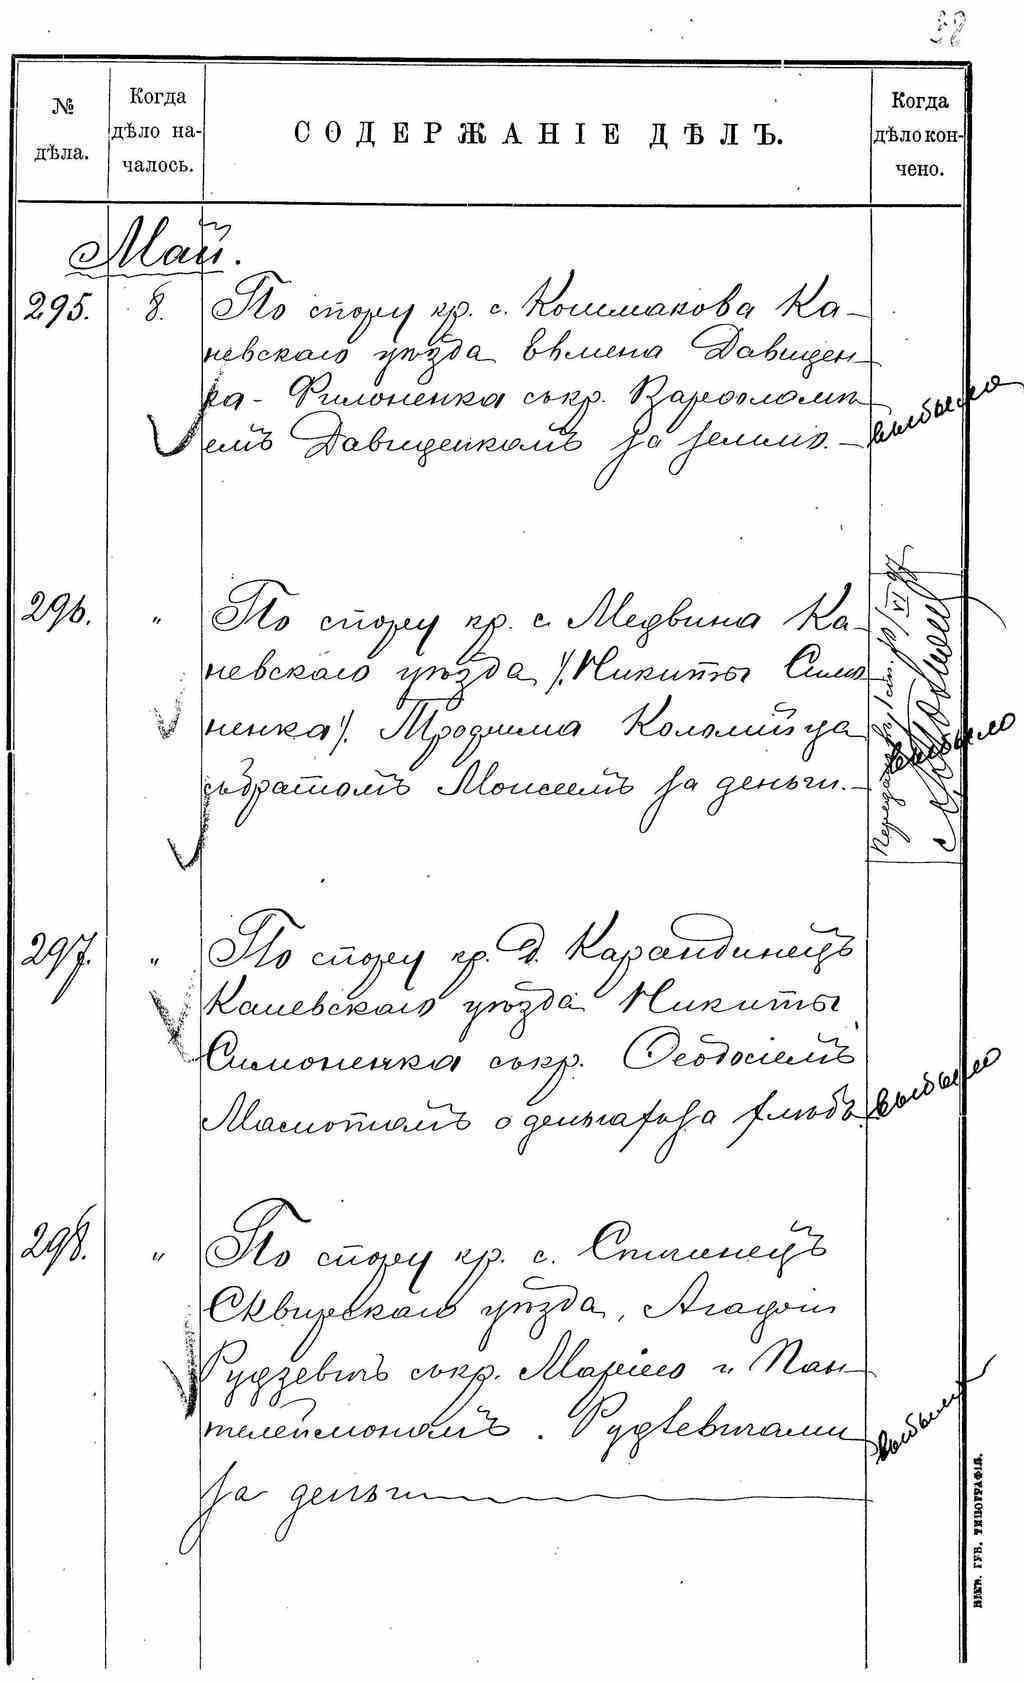 58
№ дѣла.
Когда дѣло началось.
СОДЕРЖАНІЕ ДѢЛЪ.
Когда дѣло кончено.
Май.
295. 8. По спору кр. с. Кошмакова Ка-
невскаго уѣзда Евмена Давиден-
ка - Филоненка съ кр. Варѳоломѣ-
емъ Давиденкомъ за землю. - выбыло
296. " По спору кр. с. Медвина Ка-
невскаго уѣзда /. Никиты Симо
ненка /. Трофима Коломійца
съ братомъ Моисеемъ за деньги. -
выбыло
297. " По спору кр. д. Карандинецъ
Каневскаго уѣзда Никиты
Симоненка съ кр. Ѳеодосіемъ
о деньгахъ за хлѣбъ. выбыло
298. " По спору кр. с.
Сквирскаго уѣзда, Агафіи
Рудзевичъ съ кр. Маріею и Пан-
телеймономъ. Рудзевичами выбыли
за деньги
КІЕВ. ГУБ. ТИПОГРАФІЯ.